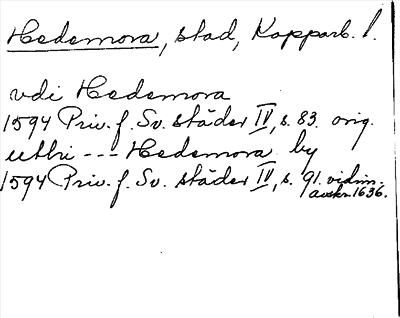 Hedemora, stad, Kopparb. l.
vdi Hedemora
1594 Priv. f. Sv. städer IV, s. 83. orig.
uthi --- Hedemora by
1594 Priv. f. Sv. städer IV, s. 91. vidim.
avskr. 1636.